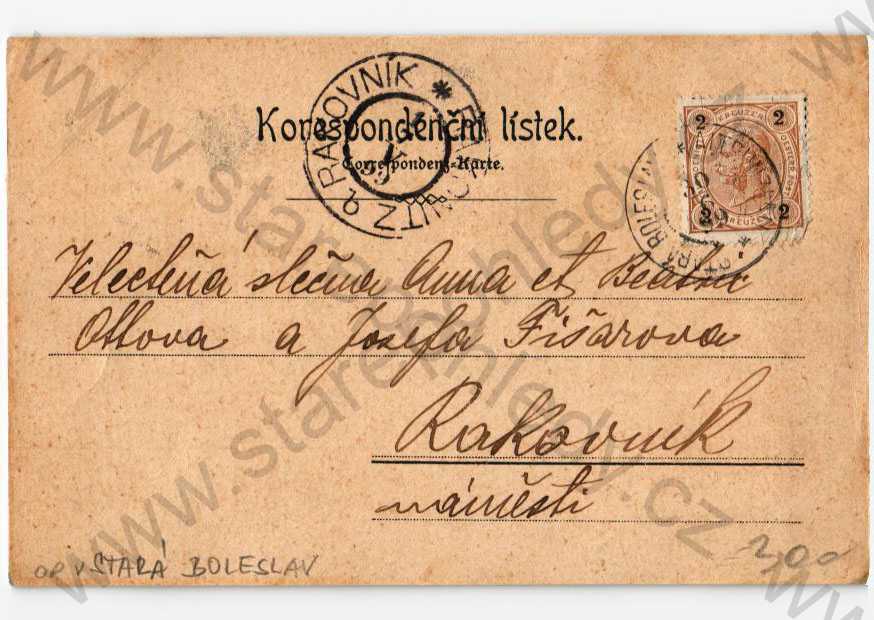 Korespondenční lístek.
Correspondenz-Karte.
RAKOVNÍK * RAKONITZ
2 KREUZER 2
2 KREUZER 2
STARÁ BOLESLAV *
Velectěná slečna Anna et Beatric
Ottova a Josefa Fišarova
Rakovník
náměstí
STARÁ BOLESLAV
200
www.starepohledy.cz